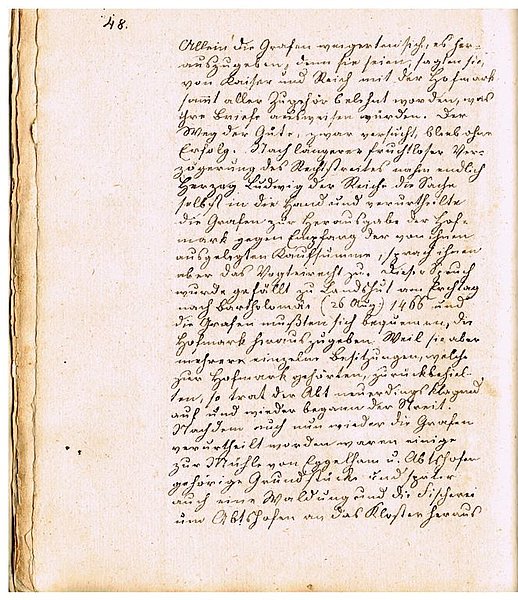 48.
Allein die Grafen weigerten sich, es her-
auszugeben, denn sie seien, sagten sie,
von Kaiser und Reich mit der Hofmark
sammt aller Zugehör belehnt worden, was
ihre Briefe ausweisen würden. Der
Weg der Güte, zwar versucht, blieb ohne
Erfolg. Nach längerer fruchtloser Ver-
zögerung des Rechtstreites nahm endlich
Herzog Ludwig der Reiche die Sache
selbst in die Hand und verurtheilte
die Grafen zur Herausgabe der Hof-
mark gegen Empfang der von ihnen
ausgelegten Kaufsumme, sprach ihnen
aber das Vogteirecht zu. Dieser Spruch
wurde gefällt zu Landshut am Erchtag
nach Bartholomäi (26 Aug.) 1466 und
die Grafen mußten sich bequemen, die
Hofmark herauszugeben. Weil sie aber
mehrere einzelne Besitzungen, welche
zur Hofmark gehörten, zurückbehiel-
ten, so trat der Abt neuerdings klagend
auf und wieder begann der Streit.
Nachdem auch nun wieder die Grafen
verurtheilt worden waren einige
zur Mühle von Eggelham u. Abtshofen
gehörige Grundstücke und später
auch eine Waldung und die Fischerei
um Abtshofen an das Kloster heraus